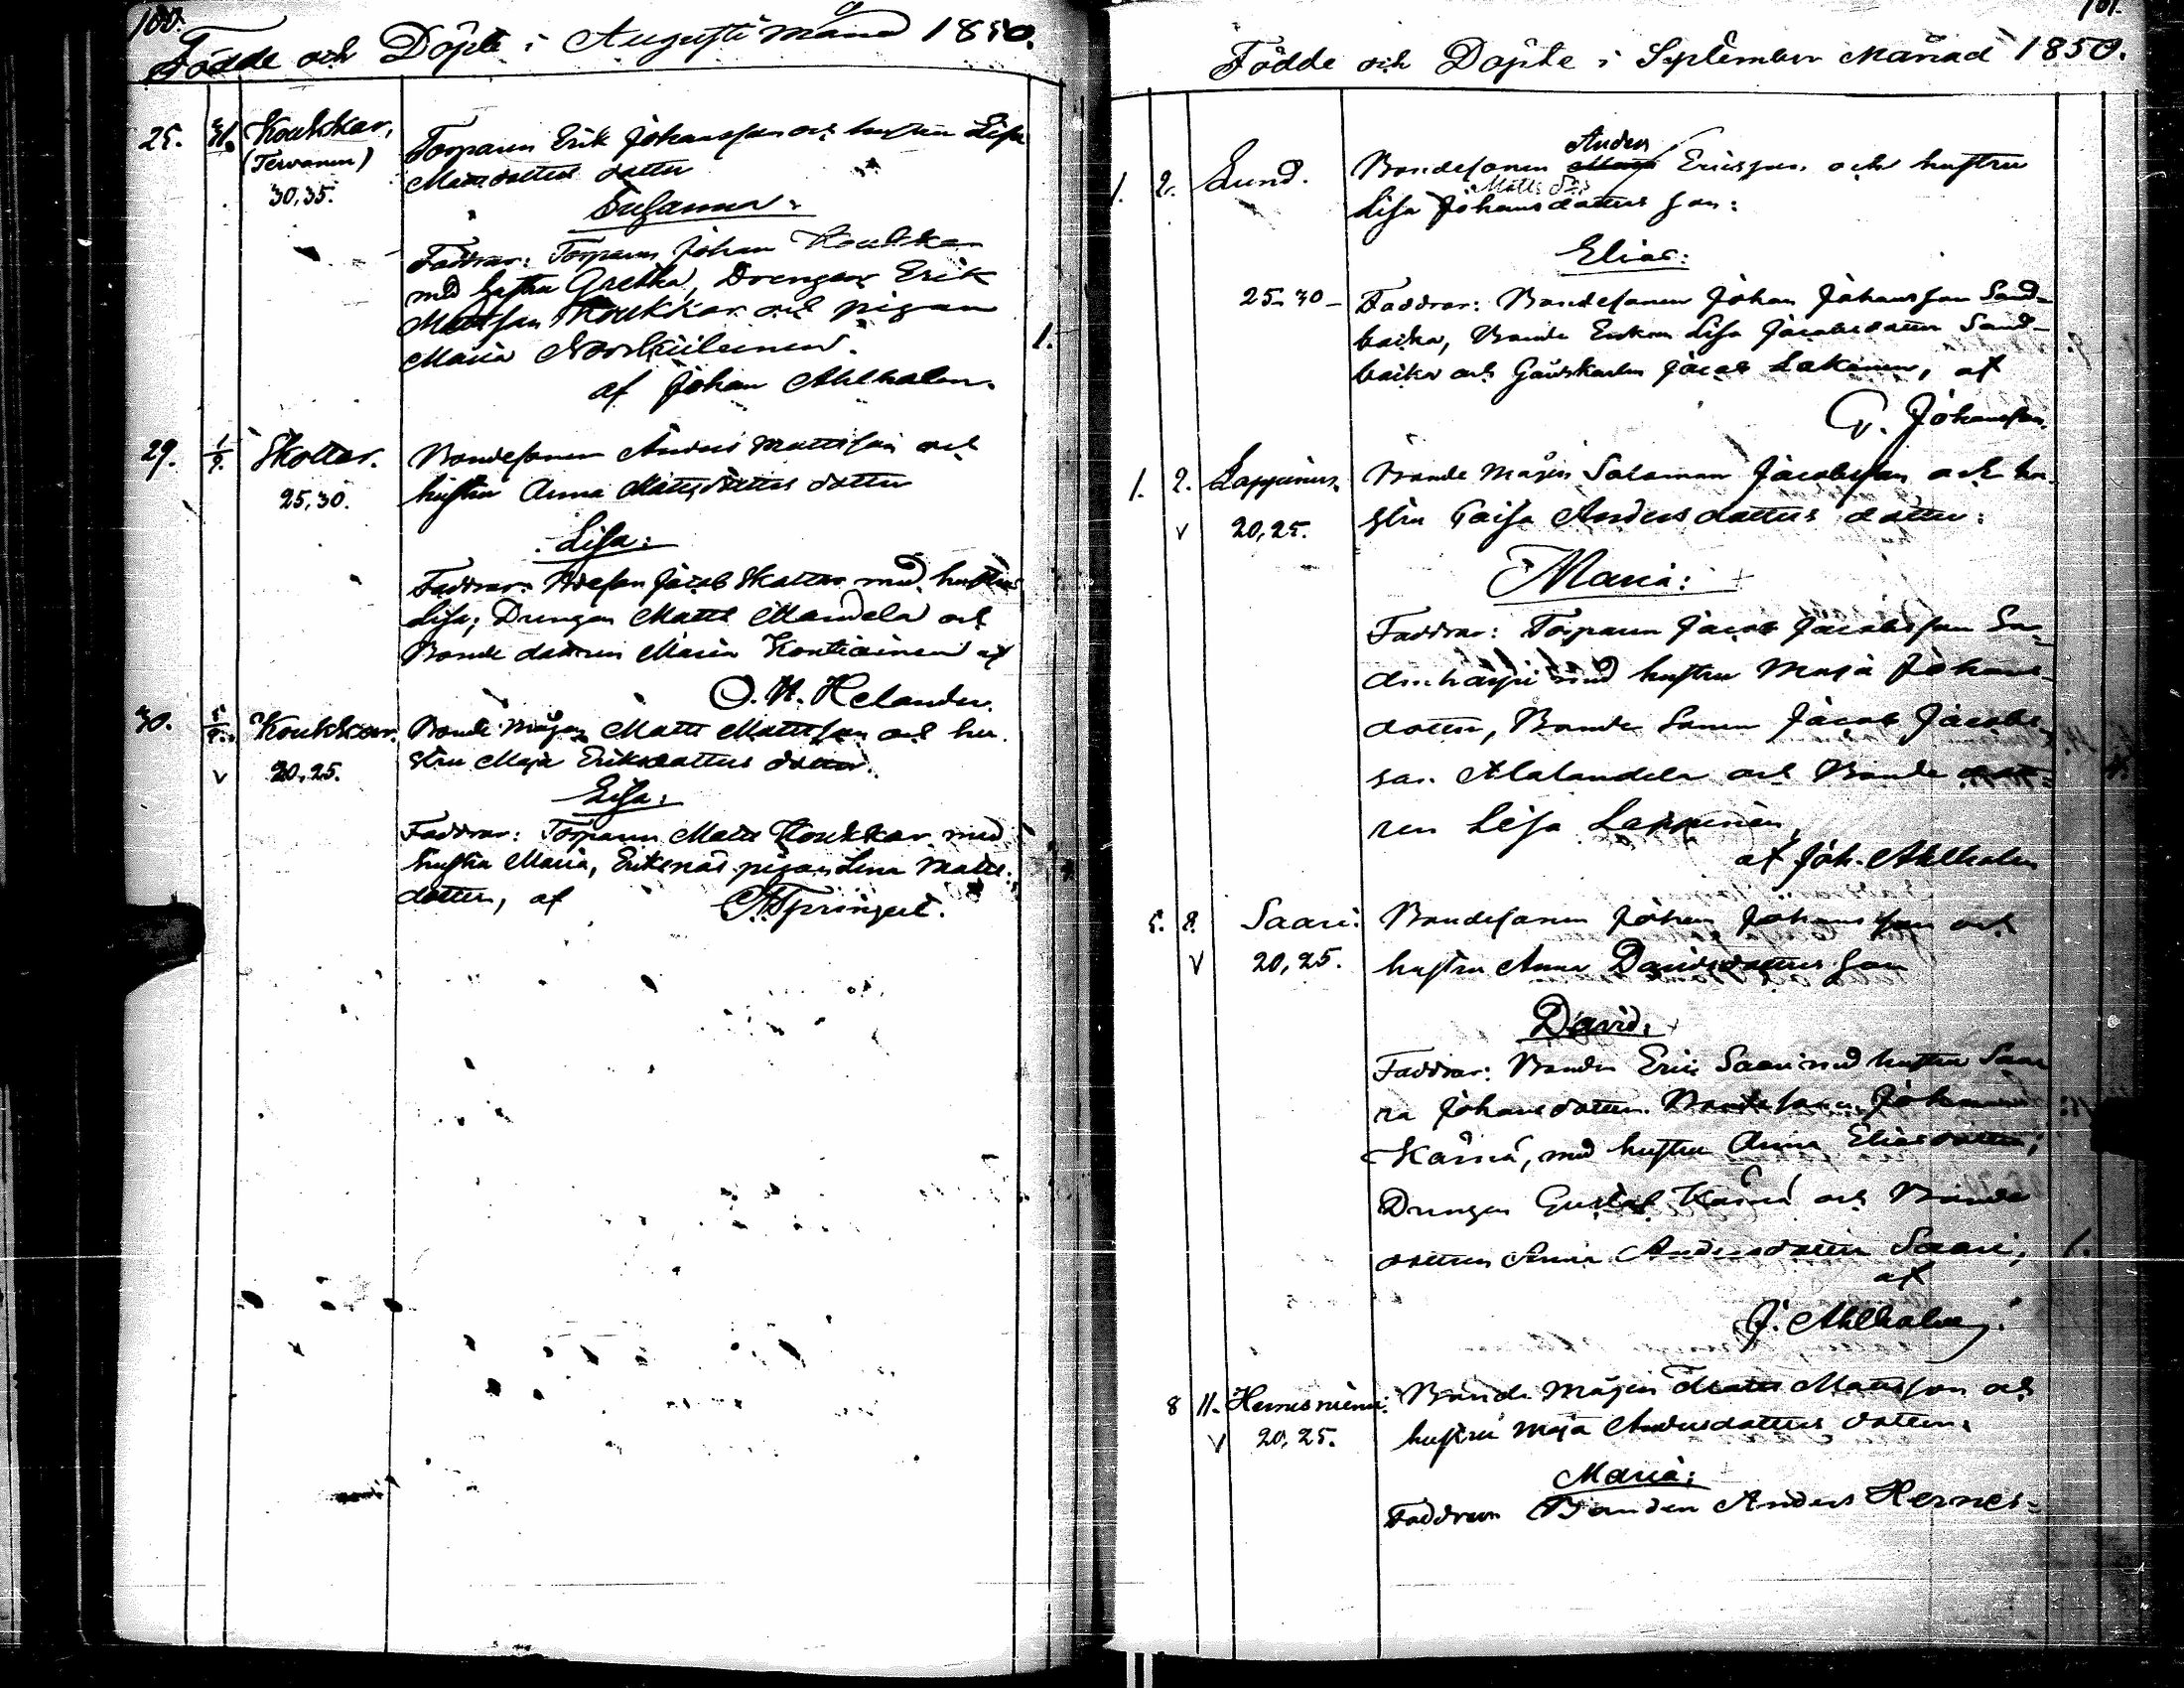 100.
Födde och Döpte i Augusti månad 1850.
25. 31. Koukkar,
(Tervanen)
30,35.
Torparen Erik Johansson och hustru Lisa
Mattsdotters dotter
Susanna:
Faddrar: Torparen Johan Koukkar
med hustru Gretha, Drengen Erik
Mattsson Koukkar och pigan
Maria
1.
af Johan Ahlholm.
29. 1/9. Skottar.
25,30.
Bondesonen Anders Mattsson och
hustru Anna Mattsdotters dotter
Lisa:
Faddrar: Jacob Skottar med hustru
Lisa, Drengen Matts Mandela och
Bonde dottren Maria Kontiainen af
O. W. Helander.
30. 5/9. Koukkar.
v 20,25.
Bonde Mågen Matts Mattsson och hu-
stru Maja Eriksdotters dotter.
Lisa:
Faddrar: Torparen Matts Koukkar med
hustru Maria, Eriksnäs pigan Lena Matts-
dotter, af Springert.
101.
Födde och Döpte i September Månad 1850.
1. 2. Lund.
25-30-
Anders
Bondesonen Ericsson och hustru
Matts drs
Lisa Johansdotters son:
Elias:
Faddrar: Bondesonen Johan Johansson Sand-
backa, Bonde Enkan Lisa Jacobsdotter Sand-
backa och Gårdskarlen Jacob Lakanen, af
G. Johansson.
1. 2. Lappinen.
v 20,25.
Bonde Mågen Salomon Jacobsson och hu-
stru Caisa Andersdotters dotter:
Maria:
Faddrar: Torparen Jacob Jacobsson
med hustru Maja Johans-
dotter, Bonde Sonen Jacob Jacobs-
son Alalandela och Bonde dott-
ren Lisa Lappinen,
af Joh. Ahlholm
5. 8. Saari.
v 20,25.
Bondesonen Johan Johansson och
hustru Anna Davidsdotters son
David:
Faddrar: Bonden Eric Saari med hustru Saa-
ra Johansdotter. Bondesonen Johannes
Kärnä, med hustru Anna Eliasdotter,
Drengen Gustaf Kärnä och Bonde
dottren Anna Andersdotter Saari,
1.
af
J. Ahlholm.
8 11. Hernesniemi.
v 20,25.
Bonde Mågen Matts Mattsson och
hustru Maja Andersdotters dotter.
Maria:
Faddrar Bonden Anders Hernes-